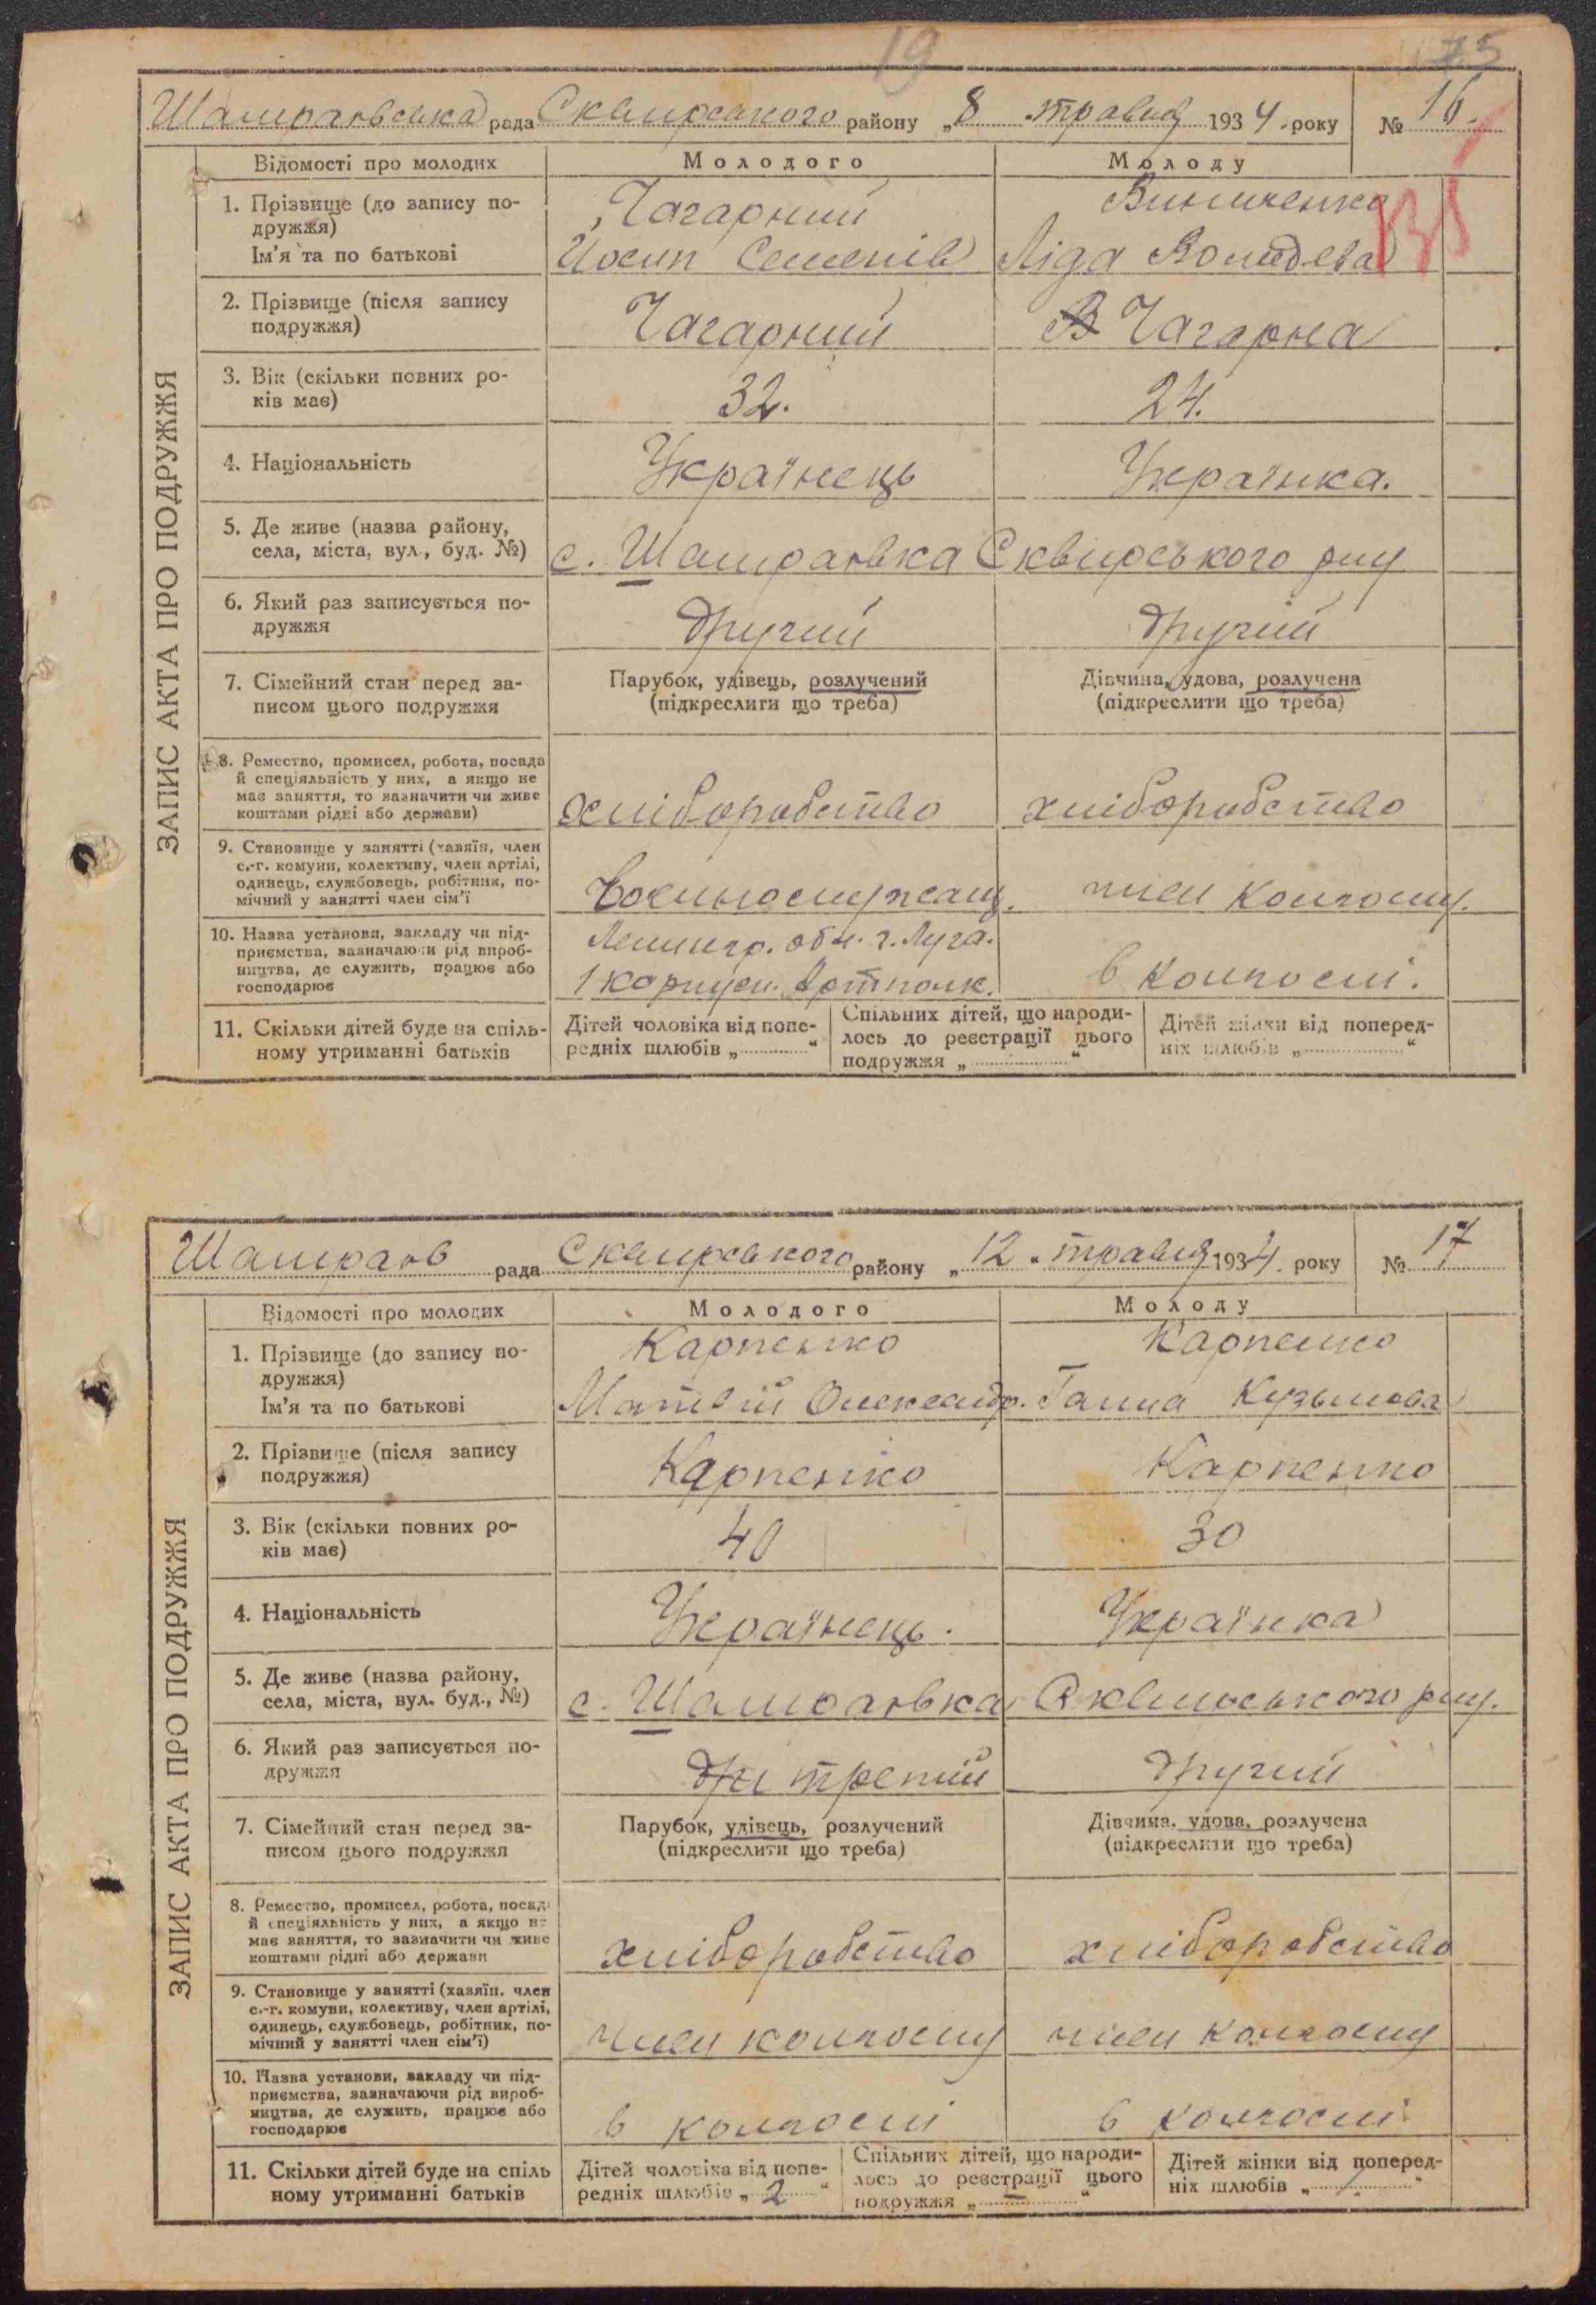 19
75
Шамраївська рада Сквирського району „8 травня 1934. року № 16.
ЗАПИС АКТА ПРО ПОДРУЖЖЯ
Відомості про молодих Молодого Молоду
1. Прізвище (до запису по-
дружжя)
Ім'я та по батькові
Чагарний
Йосип Семенів
Винниченко
Ліда
2. Прізвище (після запису
подружжя)
Чагарний
Чагарна
3. Вік (скільки повних ро-
ків має)
32.
24.
4. Національність
Українець
Українка.
5. Де живе (назва району,
села, міста, вул., буд. №)
с. Шамраївка Сквирського р-ну
6. Який раз записується по-
дружжя
Другий
Другий
7. Сімейний стан перед за-
писом цього подружжя
Парубок, удівець, розлучений
(підкреслити що треба)
Дівчина, удова, розлучена
(підкреслити що треба)
8. Ремество, промисел, робота, посада
й спеціяльність у них, а якщо не
має заняття, то зазначити чи живе
коштами рідні або держави)
хліборобство
хліборобство
9. Становище у занятті (хазяїн, член
с.-г. комуни, колективу, член артілі,
одинець, службовець, робітник, по-
мічний у занятті член сім'ї
Воєннослужащ.
член колгоспу.
10. Назва установи, закладу чи під-
приємства, зазначаючи рід вироб-
ництва, де служить, працює або
господарює
Ленингр. обл. г. Луга.
1 корпусн. Артполк.
в колгоспі.
11. Скільки дітей буде на спіль-
ному утриманні батьків
Дітей чоловіка від попе-
редніх шлюбів „ “
Спільних дітей, що народи-
лось до реєстрації цього
подружжя „ “
Дітей жінки від поперед-
ніх шлюбів „ “
Шамраїв рада Сквирського району „12“ травня 1934. року № 17
ЗАПИС АКТА ПРО ПОДРУЖЖЯ
Відомості про молодих Молодого Молоду
1. Прізвище (до запису по-
дружжя)
Ім'я та по батькові
Карпенко
Матвій Олександр.
Карпенко
Ганна Кузьмова
2. Прізвище (після запису
подружжя)
Карпенко
Карпенко
3. Вік (скільки повних ро-
ків має)
40
30
4. Національність
Українець.
Українка
5. Де живе (назва району,
села, міста, вул. буд., №)
с. Шамраївка Сквирського р-ну.
6. Який раз записується по-
дружжя
третій
Другий
7. Сімейний стан перед за-
писом цього подружжя
Парубок, удівець, розлучений
(підкреслити що треба)
Дівчина, удова, розлучена
(підкреслити що треба)
8. Ремество, промисел, робота, посада
й спеціяльність у них, а якщо не
має заняття, то зазначити чи живе
коштами рідні або держави
хліборобство
хліборобство
9. Становище у занятті (хазяїн. член
с.-г. комуни, колективу, член артілі,
одинець, службовець, робітник, по-
мічний у занятті член сім'ї)
член колгоспу
член колгоспу
10. Назва установи, закладу чи під-
приємства, зазначаючи рід вироб-
ництва, де служить, працює або
господарює
в колгоспі
в колгоспі
11. Скільки дітей буде на спіль
ному утриманні батьків
Дітей чоловіка від попе-
редніх шлюбів „ 2 “
Спільних дітей, що народи-
лось до реєстрації цього
подружжя „ — “
Дітей жінки від поперед-
ніх шлюбів „ “